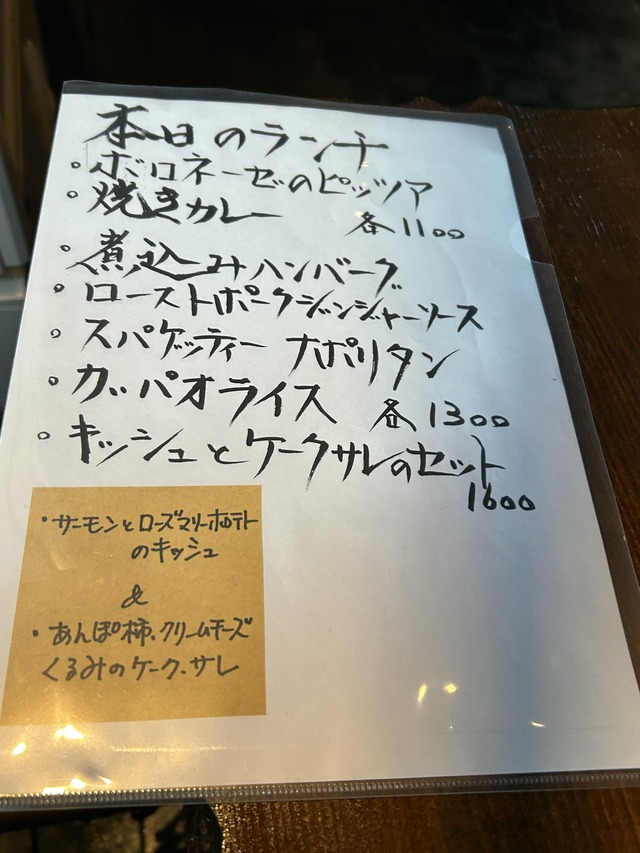 本日のランチ
・ボロネーゼのピッツア
・焼きカレー 各1100
・煮込みハンバーグ
・ローストポークジンジャーソース
・スパゲッティー ナポリタン
・ガッパオライス 各1300
・キッシュとケークサレのセット
1600
・サーモンとローズマリーポテト
のキッシュ
&
・あんぽ柿、クリームチーズ
くるみのケーク・サレ